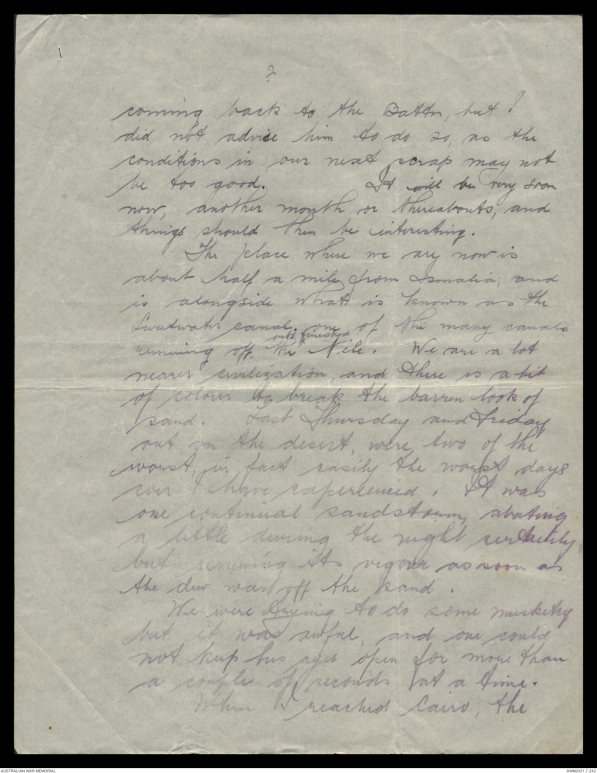 2
coming back to the Battn, but I
did not advise him to do so, as the
conditions in our next scrap may not
be too good. It will be very soon
now, another month or thereabouts, and
things should then be interesting.
The place where we are now is
about half a mile from Ismalia, and
is alongside what is known as the
Sweetwater canal, one of the many canals
running off the Nile. We are a lot
nearer civilization, and there is a bit
of colour to break the barren look of
sand. Last Thursday and Friday
out on the desert, were two of the
worst, in fact easily the worst days
ever I have experienced. It was
one continual sandstorm, abating
a little during the night certainly,
but renewing its vigour as soon as
the dew was off the sand.
We were trying to do some musketry
but it was awful, and one could
not keep his eyes open for more than
a couple of seconds at a time.
When I reached Cairo, the
AUSTRALIAN WAR MEMORIAL